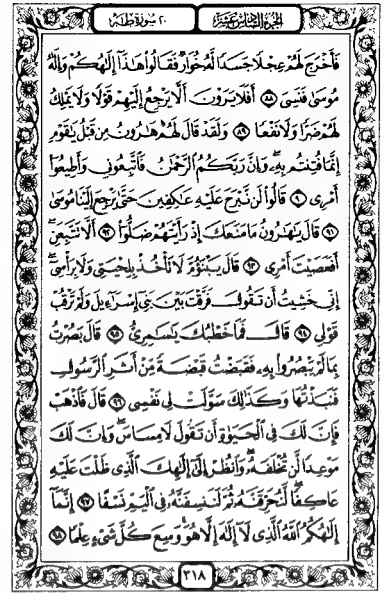 الجزء السادس عشر
٢٠ سورة طه
فَأَخْرَجَ لَهُمْ عِجْلًا جَسَدًا لَّهُ خُوَارٌ فَقَالُوا هَٰذَا إِلَٰهُكُمْ وَإِلَٰهُ
مُوسَىٰ فَنَسِيَ ٨٨ أَفَلَا يَرَوْنَ أَلَّا يَرْجِعُ إِلَيْهِمْ قَوْلًا وَلَا يَمْلِكُ
لَهُمْ ضَرًّا وَلَا نَفْعًا ٨٩ وَلَقَدْ قَالَ لَهُمْ هَٰرُونُ مِن قَبْلُ يَٰقَوْمِ
إِنَّمَا فُتِنتُم بِهِۦ وَإِنَّ رَبَّكُمُ الرَّحْمَٰنُ فَاتَّبِعُونِي وَأَطِيعُوا
أَمْرِي ٩٠ قَالُوا لَن نَّبْرَحَ عَلَيْهِ عَٰكِفِينَ حَتَّىٰ يَرْجِعَ إِلَيْنَا مُوسَىٰ
٩١ قَالَ يَٰهَٰرُونُ مَا مَنَعَكَ إِذْ رَأَيْتَهُمْ ضَلُّوا ٩٢ أَلَّا تَتَّبِعَنِ
أَفَعَصَيْتَ أَمْرِي ٩٣ قَالَ يَبْنَؤُمَّ لَا تَأْخُذْ بِلِحْيَتِي وَلَا بِرَأْسِي
إِنِّي خَشِيتُ أَن تَقُولَ فَرَّقْتَ بَيْنَ بَنِي إِسْرَٰٓءِيلَ وَلَمْ تَرْقُبْ
قَوْلِي ٩٤ قَالَ فَمَا خَطْبُكَ يَٰسَٰمِرِيُّ ٩٥ قَالَ بَصُرْتُ
بِمَا لَمْ يَبْصُرُوا بِهِۦ فَقَبَضْتُ قَبْضَةً مِّنْ أَثَرِ الرَّسُولِ
فَنَبَذْتُهَا وَكَذَٰلِكَ سَوَّلَتْ لِي نَفْسِي ٩٦ قَالَ فَاذْهَبْ
فَإِنَّ لَكَ فِي الْحَيَوٰةِ أَن تَقُولَ لَا مِسَاسَ وَإِنَّ لَكَ
مَوْعِدًا لَّن تُخْلَفَهُۥ وَانظُرْ إِلَىٰ إِلَٰهِكَ الَّذِي ظَلْتَ عَلَيْهِ
عَاكِفًا لَّنُحَرِّقَنَّهُۥ ثُمَّ لَنَنسِفَنَّهُۥ فِي الْيَمِّ نَسْفًا ٩٧ إِنَّمَا
إِلَٰهُكُمُ اللَّهُ الَّذِي لَا إِلَٰهَ إِلَّا هُوَ وَسِعَ كُلَّ شَيْءٍ عِلْمًا ٩٨
٣١٨